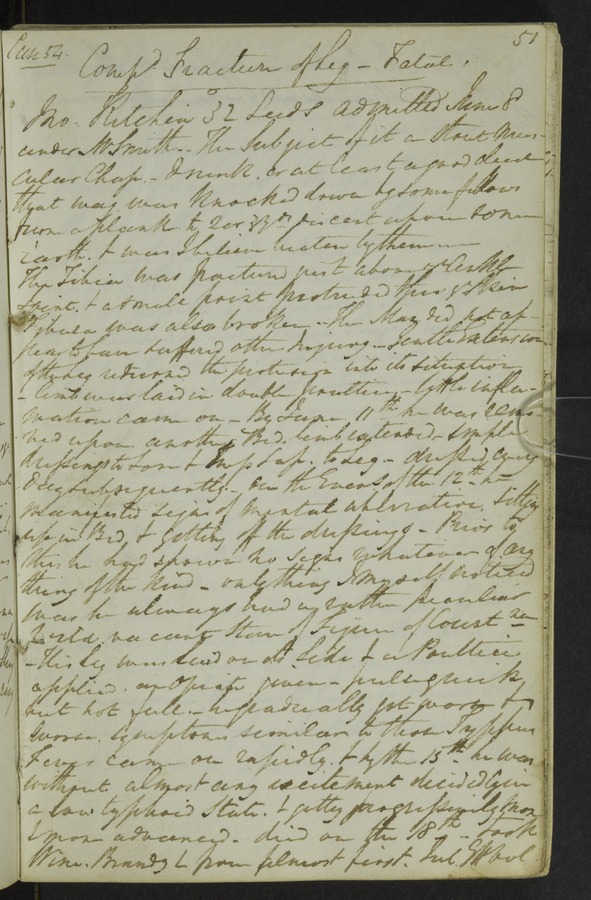 Case 54.
51
Comp.d Fracture of Leg - Fatal.
Jno. Kitchin 32 Leeds admitted June 8
under Mr Smith - The Subject of it a Stout Mus-
cular Chap - drunk. or at least a good deal
that way was knocked down by some fellows
from a plank to 2 or 3 yds descent upon some
earth. & was I believe beaten by them
The Tibia was fractured just above ye Ankle
Joint. & a small point protruded thro ye Skin
Fibula was also broken - The Man did not ap-
pear to have suffered other Injury. - Gentle Extension
of the leg returned the protrusion into its situation
- limb was laid in double - little infla-
mation came on - By June 11th he was remo-
ved upon another Bed. limb extended - simple
dressings to Sore & to Leg - dressed every
Day subsequently - On the Eveng of the 12th he
manifested signs of mental aberration. Sitting
up in Bed, & getting off the dressings - Prior to
this he had shown no signs whatever of any
thing of the kind - only thing I myself noticed
was he always had a rather peculiar
wild vacant Stare of Countce
- His leg was laid on its Side & a Poultice
applied. an Opiate given - pulse quick
but not full. - he gradually got worse &
worse. symptoms similar to those Typhus
Fever came on rapidly. & by the 15th he was
without almost any excitement decidedly in
a low typhoid State. & getting progressively more
& more advanced. died on the 18th - took
Wine. Brandy & from almost first.